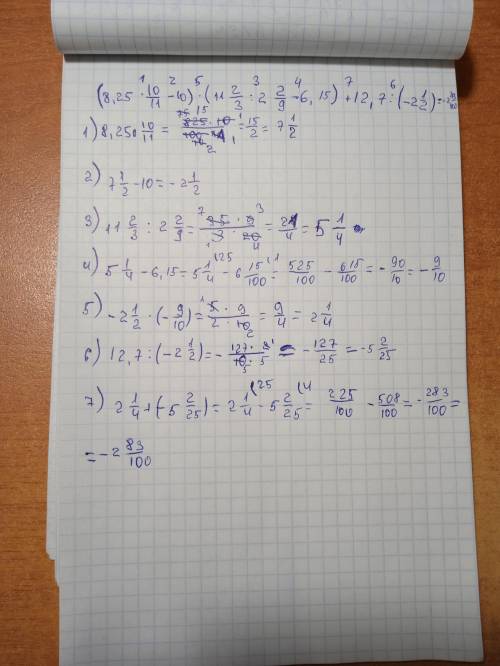 (8,25 · 10/11 - 10) · (11 2/3 : 2 2/9 - 6,15) + 12,7 : (-2 1/2) = -2 83/100
1) 8,25 · 10/11 = 825 · 10 / 100 · 11 = 15/2 = 7 1/2
2) 7 1/2 - 10 = - 2 1/2
3) 11 2/3 : 2 2/9 = 35 · 9 / 3 · 20 = 21/4 = 5 1/4
4) 5 1/4 - 6,15 = 5 1/4 - 6 15/100 = 525/100 - 615/100 = - 90/10 = - 9/10
5) - 2 1/2 · (- 9/10) = 5 · 9 / 2 · 10 = 9/4 = 2 1/4
6) 12,7 : (- 2 1/2) = - 127 · 2 / 10 · 5 = - 127/25 = -5 2/25
7) 2 1/4 + (-5 2/25) = 2 1/4 - 5 2/25 = 225/100 - 508/100 = - 283/100 =
= - 2 83/100